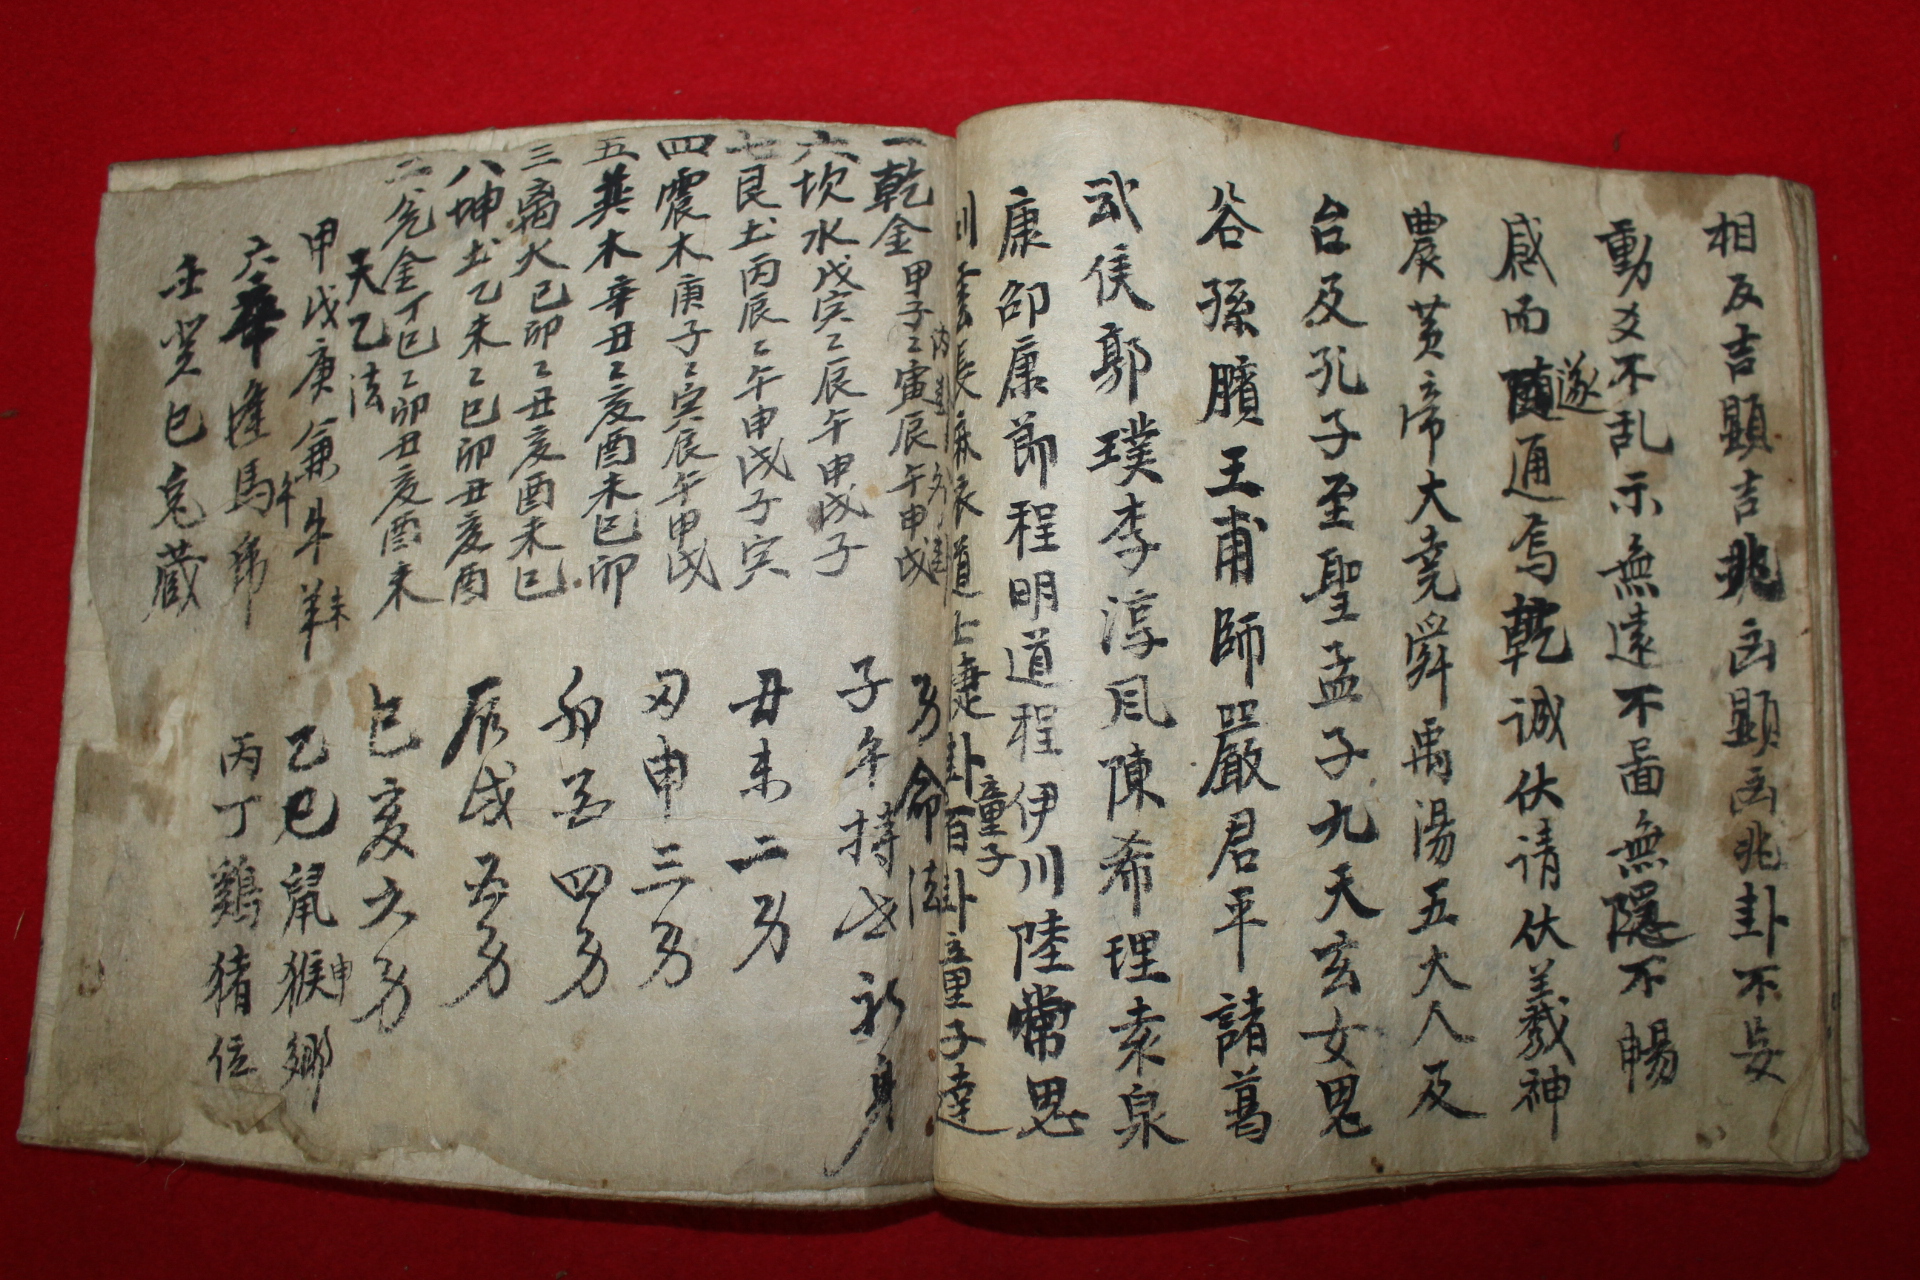 相反吉顯吉兆凶顯凶兆卦不妄
動爻不乱示無遠不啚無隱不暢
感而随遂通焉乾誠伏请伏羲神
農黃帝大堯舜禹湯五大人及
台及孔子至聖孟子九天玄女鬼
谷孫臏王甫師嚴君平諸葛
武侯郭璞李淳風陳希理索泉
康邵康節程明道程伊川陸常思
道士捷卦童子百卦童子達
一乾金甲子乙寅辰午申戌
六坎水戊寅乙辰午申戌子
七艮土丙辰乙午申戌子寅
四震木庚子乙寅辰午申戌
五巽木辛丑乙亥酉未巳卯
三离火己卯乙丑亥酉未巳
八坤土乙未乙巳卯丑亥酉
二兌金丁巳乙卯丑亥酉未
命法
子午持世初身
丑未二身
寅申三身
卯酉四身
辰戌五身
巳亥六身
天乙法
甲戊庚兼牛羊未
乙巳鼠猴申鄉
丙丁鷄猪位
六辛逢馬
午
壬癸巳兎蔵